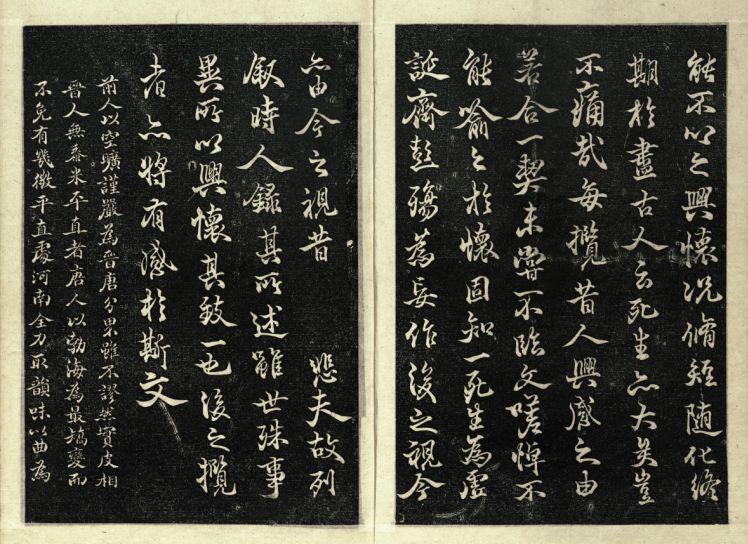 能不以之興懷況脩短隨化終
期於盡古人云死生亦大矣豈
不痛哉每攬昔人興感之由
若合一契未嘗不臨文嗟悼不
能喻之於懷固知一死生為虛
誕齊彭殤為妄作後之視今
亦由今之視昔 悲夫故列
叙時人錄其所述雖世殊事
異所以興懷其致一也後之攬
者亦將有感於斯文
前人以空曠謹嚴為晉唐分界雖不謬然實皮相
晉人無黍米平直者唐人以勃海為最譎變而
不免有幾微平直處河南全力取韻味以曲為